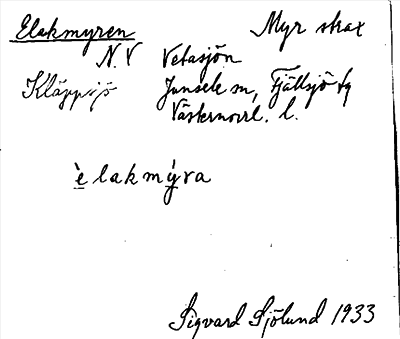 Elakmyren Myr strax
N.V Vetasjön
Kläppsjö Junsele sn, Fjällsjö tg
Västernorrl. l.
èlakmýra
Sigvard Sjölund 1933